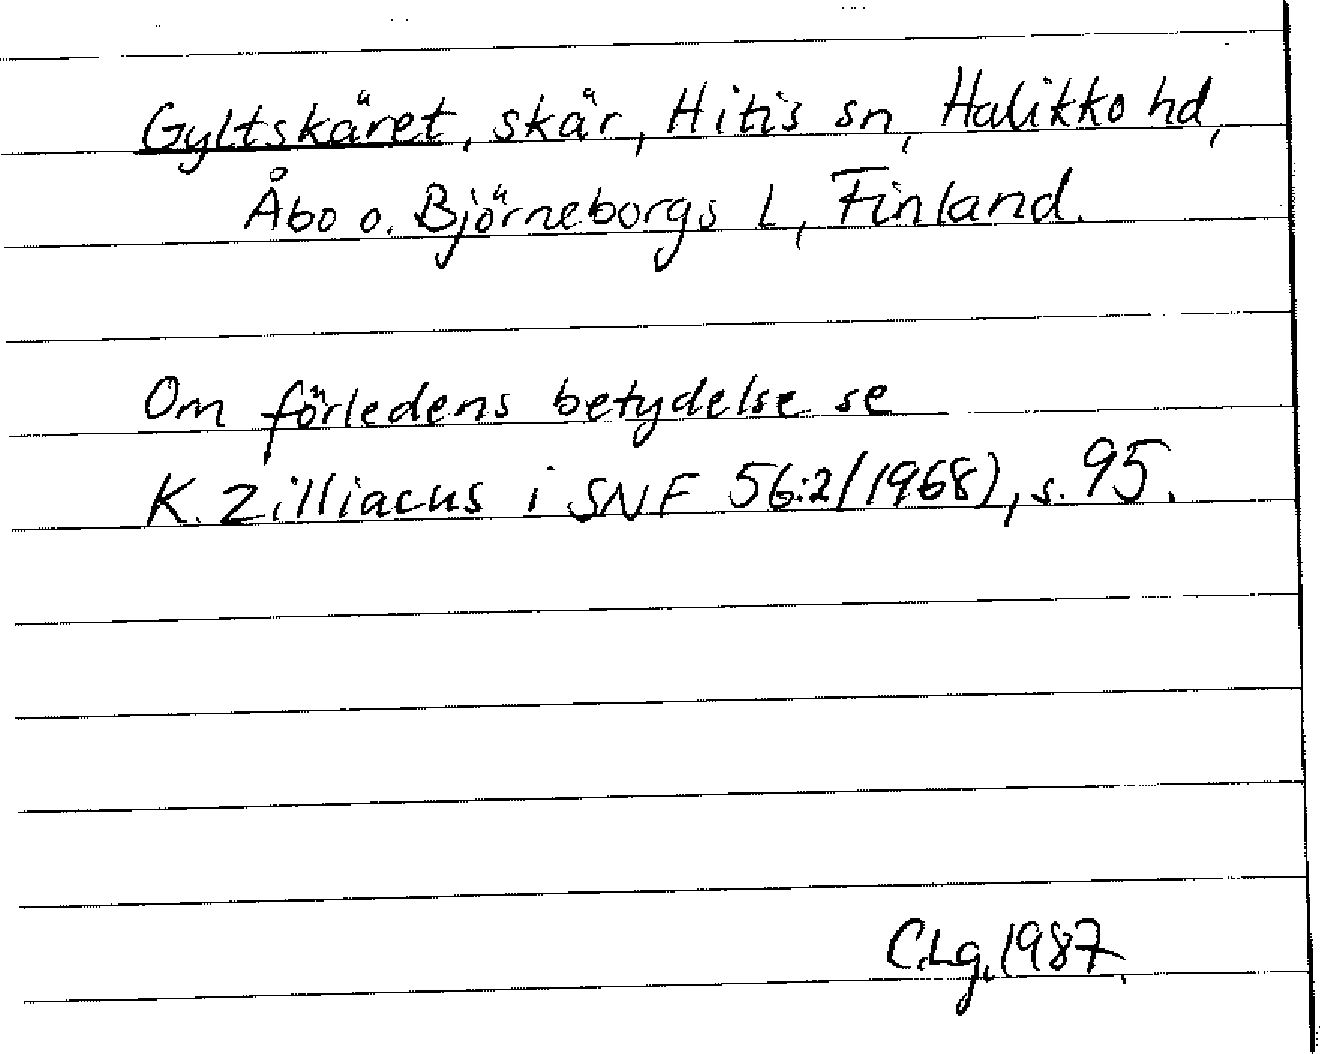 Gyltskäret, skär, Hitis sn, Halikko hd,
Åbo o. Björneborgs L, Finland.
Om förledens betydelse se
K. Zilliacus i SNF 56:2/1968), s. 95.
C.Lg. 1987.